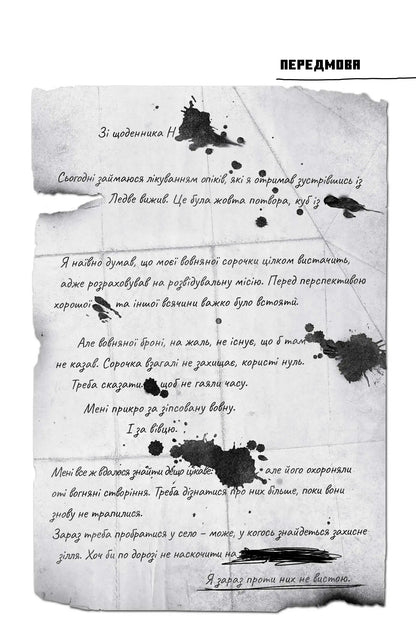 ПЕРЕДМОВА
Зі щоденника Н
Сьогодні займаюся лікуванням опіків, які я отримав зустрівшись із
Ледве вижив. Це була жовта потвора, куб із
Я наївно думав, що моєї вовняної сорочки цілком вистачить,
адже розраховував на розвідувальну місію. Перед перспективою
хорошої та іншої всячини важко було встояти.
Але вовняної броні, на жаль, не існує, що б там
не казав. Сорочка взагалі не захищає, користі нуль.
Треба сказати щоб не гаяли часу.
Мені прикро за зіпсовану вовну.
І за вівцю.
Мені все ж вдалося знайти дещо цікаве: але його охороняли
оті вогняні створіння. Треба дізнатися про них більше, поки вони
знову не трапилися.
Зараз треба пробратися у село – може, у когось знайдеться захисне
зілля. Хоч би по дорозі не наскочити на
Я зараз проти них не вистою.